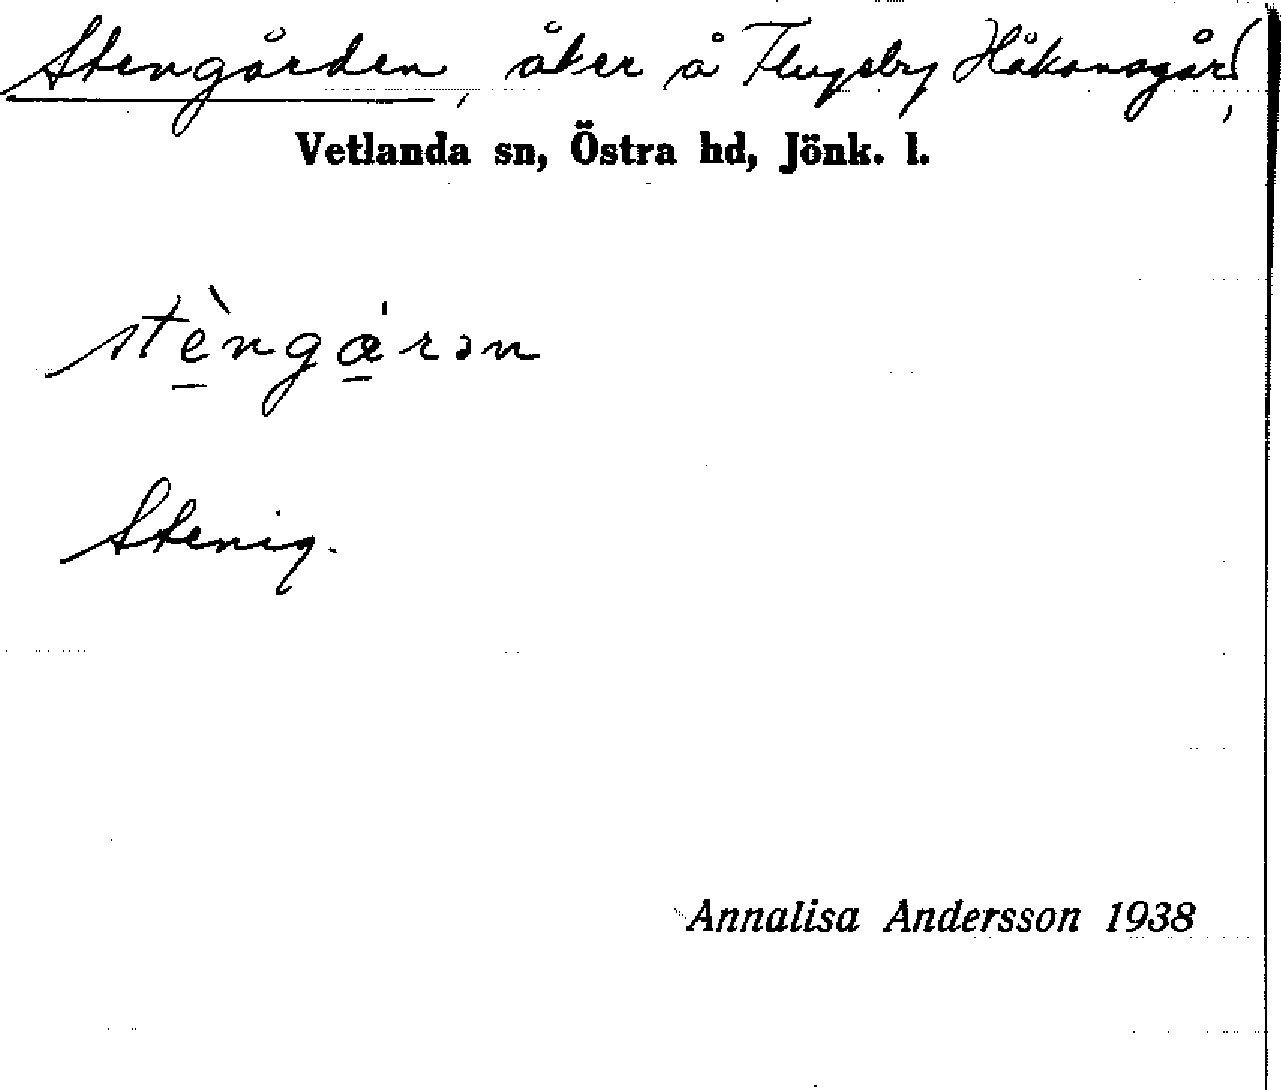 Stengården, åker å Flugeby Håkansgård,
Vetlanda sn, Östra hd, Jönk. l.
stèngá̀rən
Stenig.
Annalisa Andersson 1938